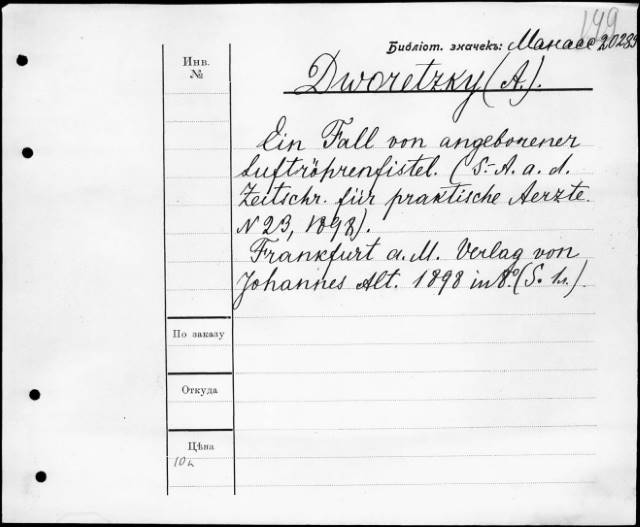 149
Библіот. значекъ: Манасс 20285
Инв.
№
Dworetzky (A.).
Ein Fall von angeborener
Luftröhrenfistel. (S.-A. a. d.
Zeitschr. für praktische Aerzte.
N 23, 1898).
Frankfurt a. M. Verlag von
Johannes Alt. 1898 in 8º. (S. 4.).
По заказу
Откуда
Цѣна
10 к